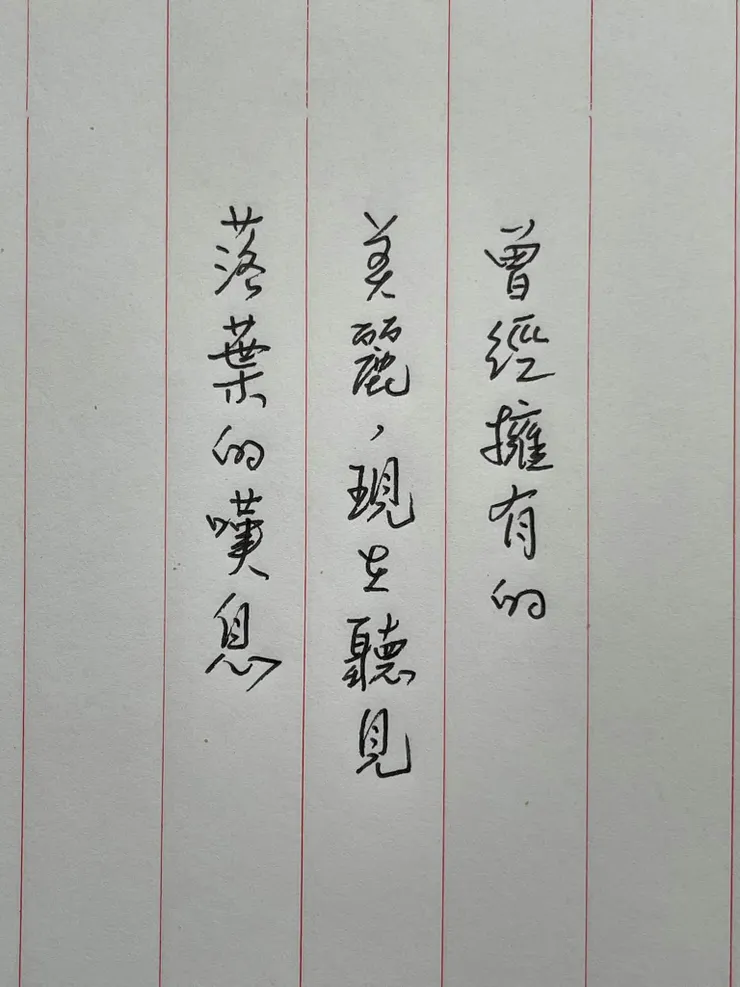 曾經擁有的
美麗，現在聽見
落葉的嘆息